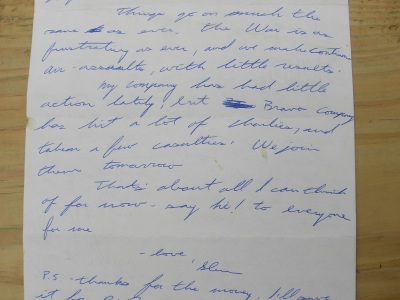 Things go on much the
same as ever. The War is as
frustrating as ever, and we make continu
air-assaults, with little results.
My company has had little
action lately, but Bravo Company
has hit a lot of Charlies, and
taken a few casualties. We join
them tomorrow
That's about all I can think
of for now - say hi! to everyone
for me
- love,
P.S. - thanks for the money, I'll save
it for